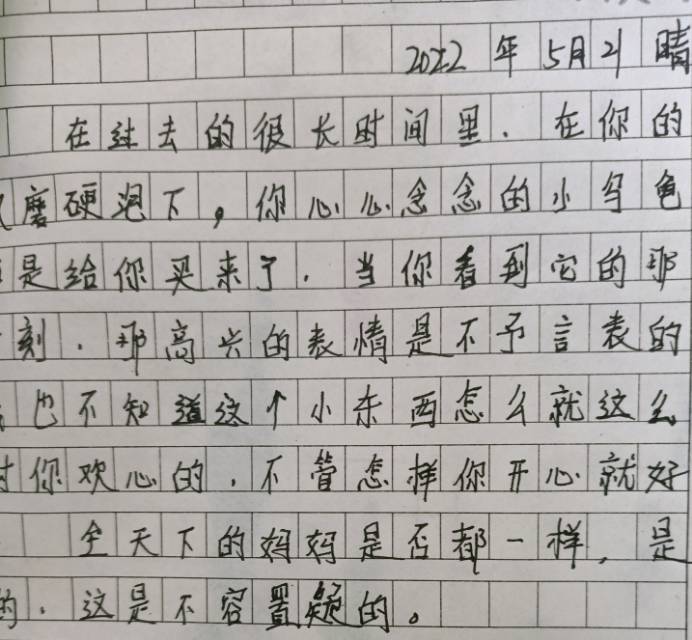 2022 年 5月21 晴
在过去的很长时间里. 在你的
磨硬泡下,你心心念念的小乌龟
是给你买来了. 当你看到它的那
刻. 那高兴的表情是不予言表的
也不知道这个小东西怎么就这么
讨你欢心的. 不管怎样你开心就好
全天下的妈妈是否都一样, 是
的. 这是不容置疑的。